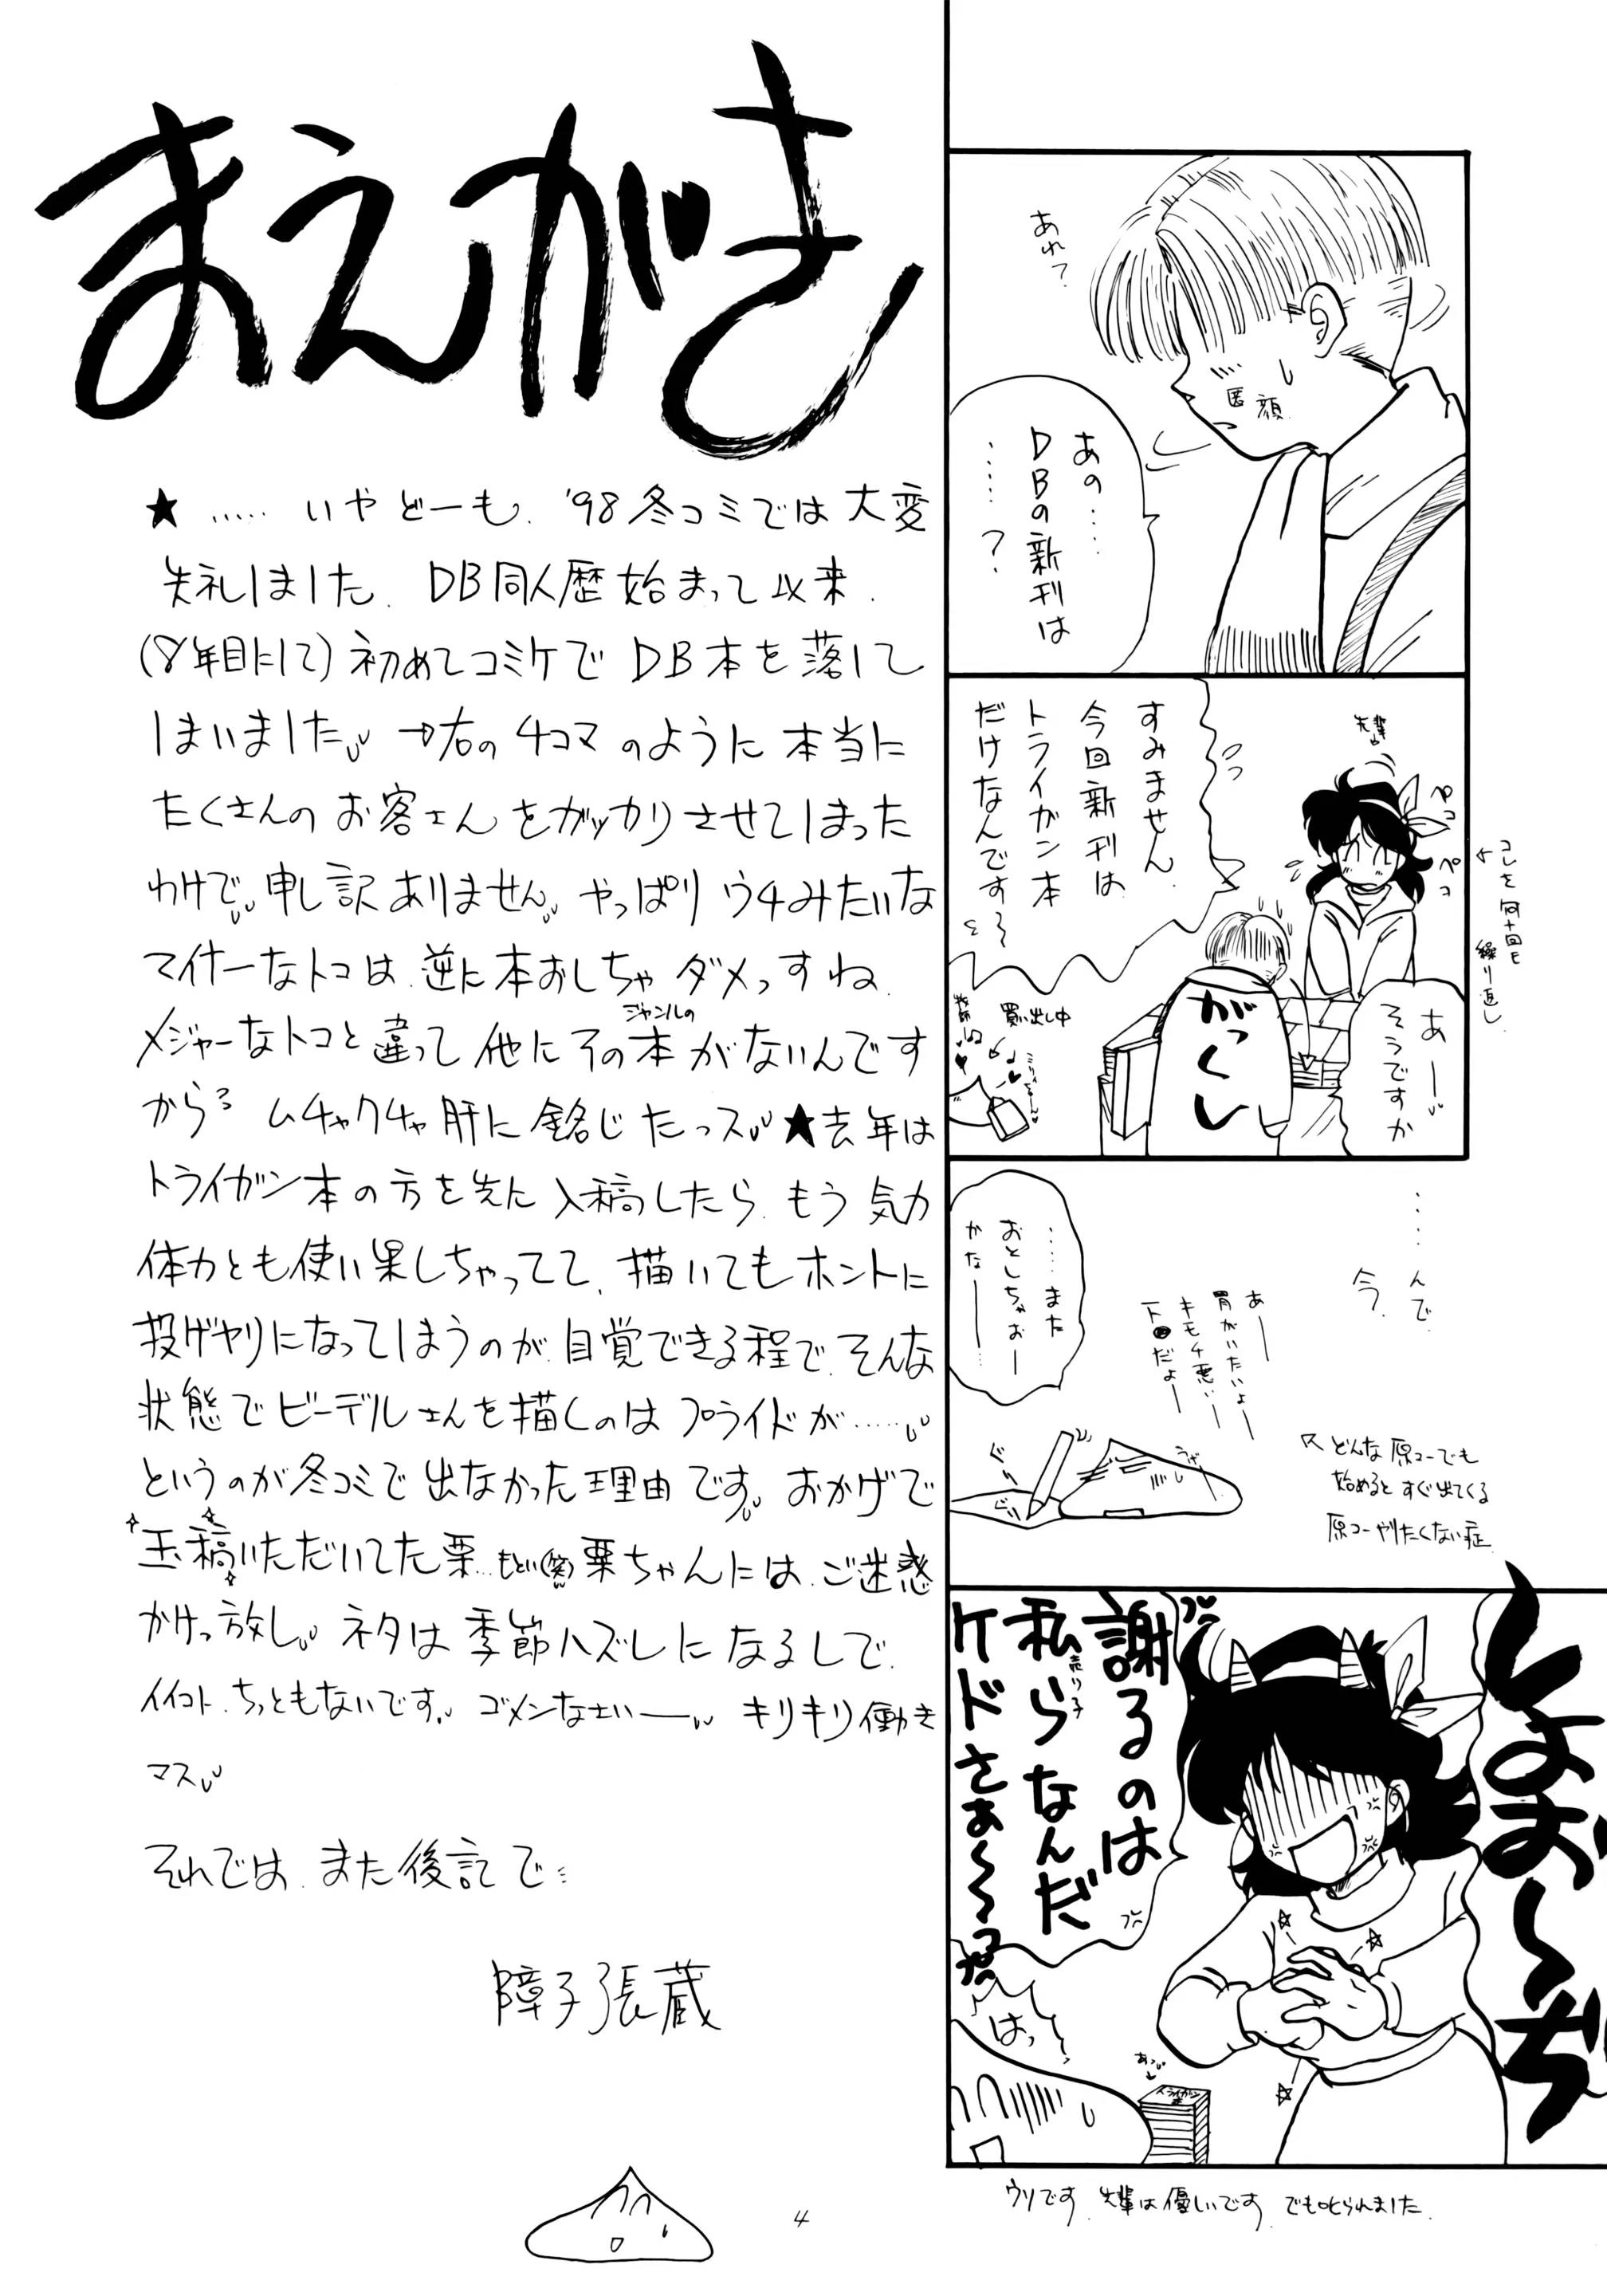 まえがき
★……いやどーも、'98冬コミでは大変
失礼しました。DB同人歴始まって以来、
(8年目にして)初めてコミケでDB本を落して
しまいました。→右の4コマのように本当に
たくさんのお客さんをガッカリさせてしまった
わけで、申し訳ありません。やっぱりウチみたいな
マイナーなトコは、逆に本おしちゃダメっすね。
メジャーなトコと違って他にそのジャンルの本がないんです
からろ ムチャクチャ肝に銘じたっス ★去年は
トライガン本の方を先に入稿したら、もう気力
体力とも使い果しちゃってて、描いてもホントに
投げヤリになってしまうのが自覚できる程で、そんな
状態でビーデルさんを描くのはプライドが……
というのが冬コミで出なかった理由です。おかげで
玉稿いただいてた栗…もとい(笑)粟ちゃんには、ご迷惑
かけっ放し。ネタは季節ハズレになるしで、
イイコト、ちっともないです。ゴメンなさいー キリキリ働き
マス
それでは、また後記で…
障子張蔵
4
あれ?
匿顔
あの……
DBの新刊は
……?
すみません
今回新刊は
トライガン本
だけなんです〜
先輩
ペコ
ペコ
コレを何十回も
繰り返し
あー
そうですか
がっくし
買い出し中
……んで、
今、
あー
胃がいたいよー
キモチ悪いー
下●だよー
……また
おとしちゃおー
かなー
ぐりぐり
どんな原コーでも
始めるとすぐ出てくる
原コーやりたくない症
しまお〜ぢ
謝るのは
私ら売り子なんだ
ケドさぁ〜〜
はっ
あっ
トライガン本
ウソです 先輩は優しいです でも叱られました